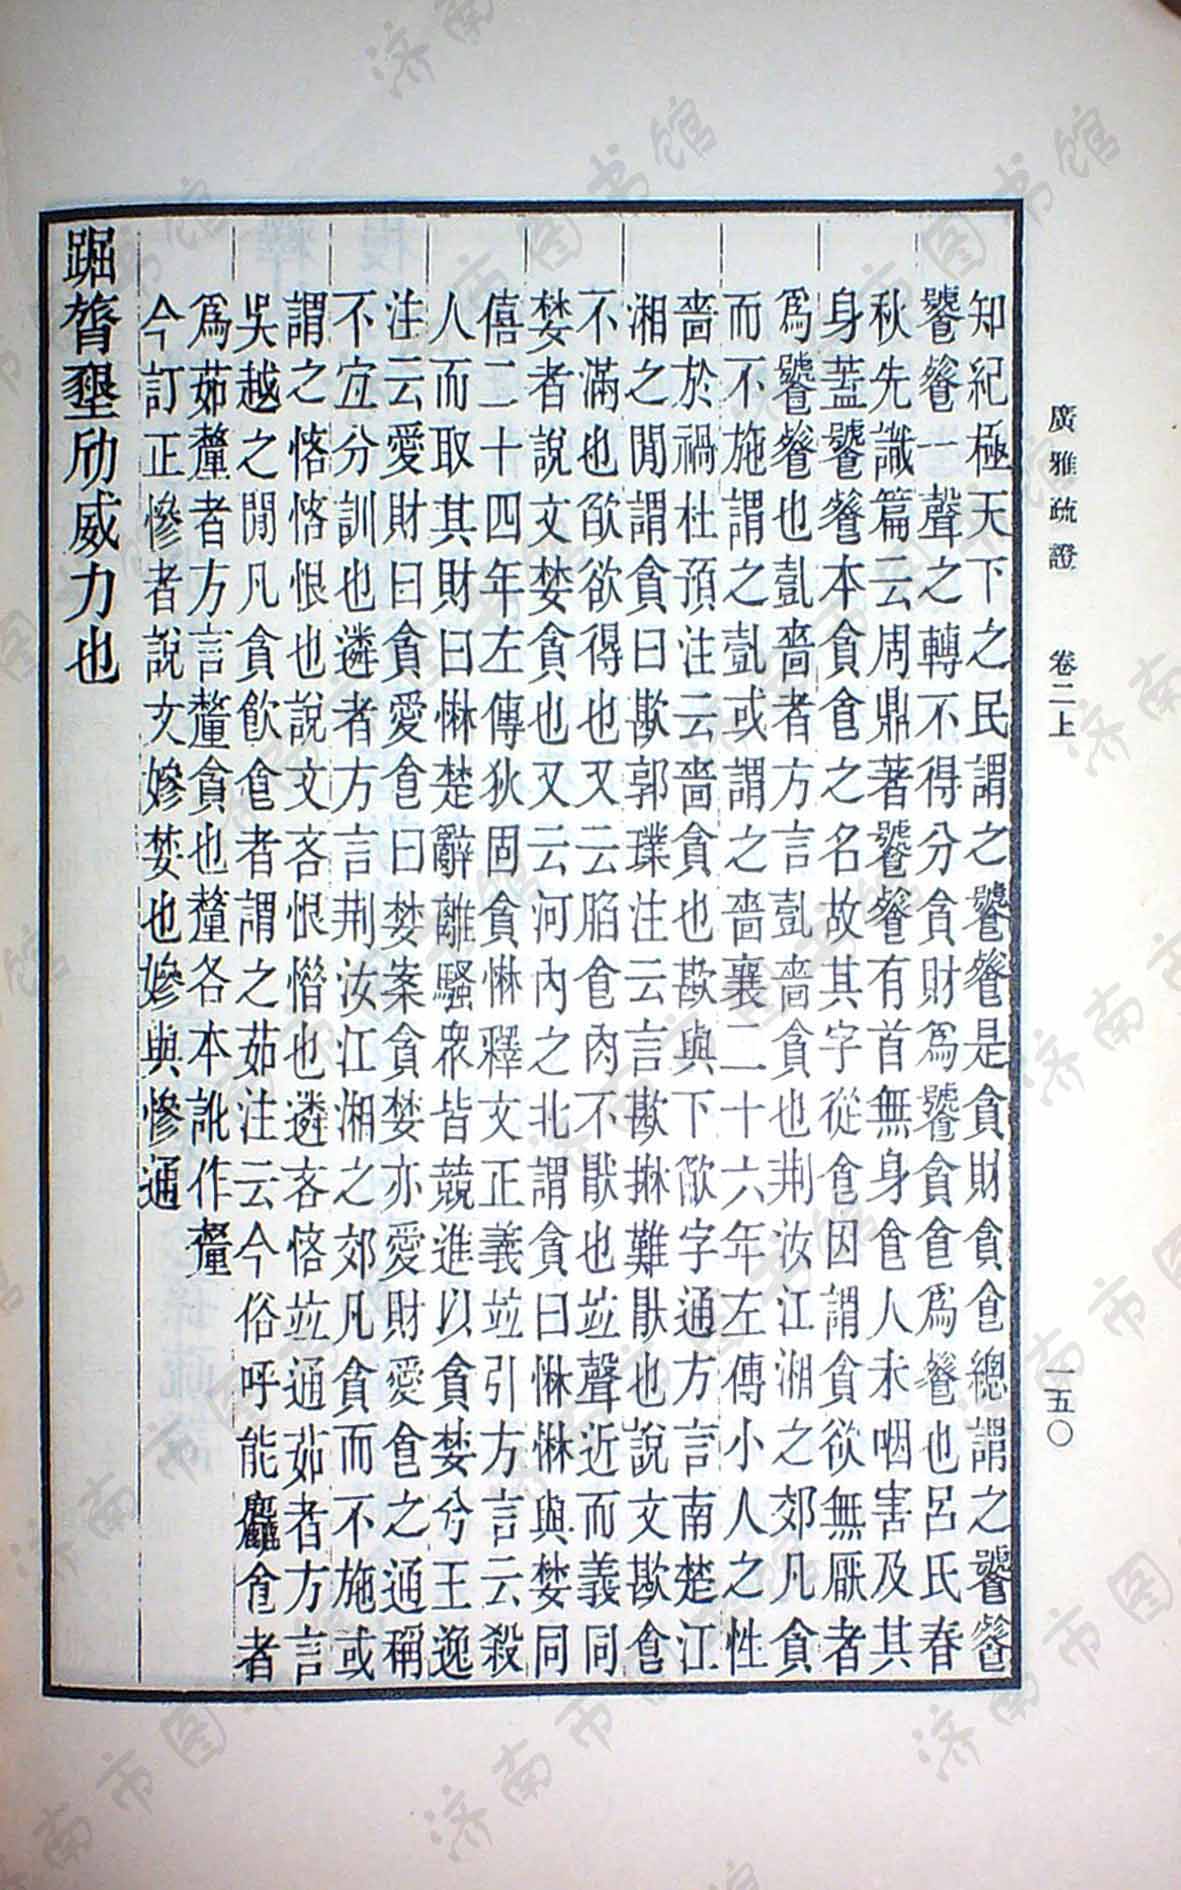 廣雅疏證　卷二上　一五〇
知紀極天下之民謂之饕餮是貪財貪食總謂之饕餮
饕餮一聲之轉不得分貪財爲饕貪食爲餮也呂氏春
秋先識篇云周鼎著饕餮有首無身食人未咽害及其
身蓋饕餮本貪食之名故其字從食因謂貪欲無厭者
爲饕餮也㱯嗇者方言㱯嗇貪也荆汝江湘之郊凡貪
而不施謂之㱯或謂之嗇襄二十六年左傳小人之性
嗇於禍杜預注云嗇貪也欿與下欿字通方言南楚江
湘之閒謂貪曰欿郭璞注云言欿㨆難猒也說文欿食
不滿也欿欲得也又云䐄食肉不猒也竝聲近而義同
婪者說文婪貪也又云河內之北謂貪曰惏惏與婪同
僖二十四年左傳狄固貪惏釋文正義竝引方言云殺
人而取其財曰惏楚辭離騷眾皆競進以貪婪兮王逸
注云愛財曰貪愛食曰婪案貪婪亦愛財愛食之通稱
不宜分訓也遴者方言荆汝江湘之郊凡貪而不施或
謂之悋悋恨也說文吝恨惜也遴吝悋竝通茹者方言
吳越之閒凡貪飲食者謂之茹注云今俗呼能麤食者
爲茹釐者方言釐貪也釐各本訛作
今訂正慘者說文嬠婪也嬠與慘通
踞膂墾劤威力也
济南市图书馆